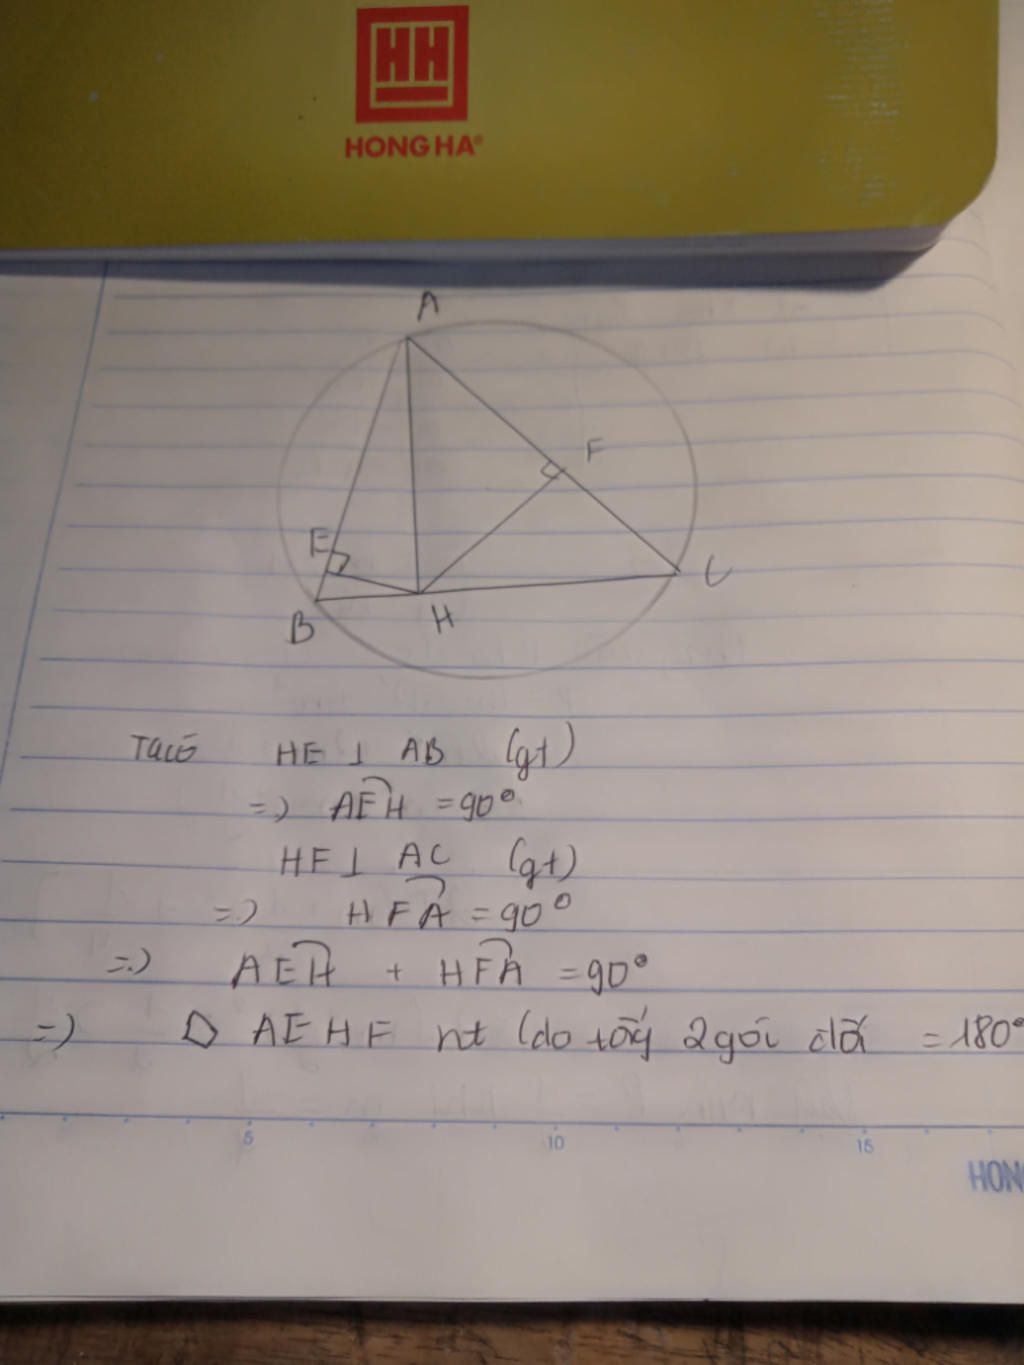 HH
HONG HA
A
F
E
C
B
H
Ta có HE ⊥ AB (gt)
=) AEH = 90°
HF ⊥ AC (gt)
=) HFA = 90°
=) AEH + HFA = 90°
=) AEHF nt (do tổng 2 góc đối = 180°
5 10 15
HON